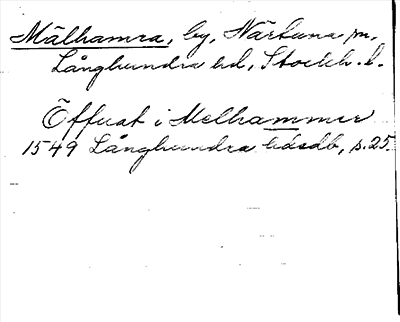 Mälhamra, by, Närtuna sn,
Långhundra hd, Stockh. l.
Öffuat i Melhammer
1549 Långhundra hdsdb, s. 25.